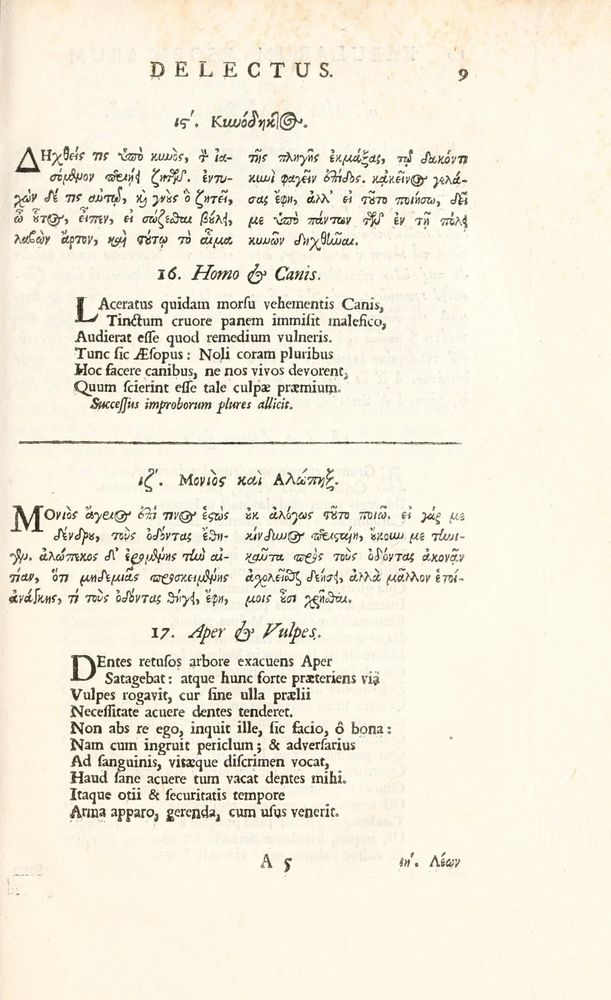 DELECTUS. 9
ιϛʹ. Κυνόδηκτος.
Δηχθείς τις ὑπὸ κυνὸς, τὸν ἰα-
σόμενον περιῄει ζητῶν. ἐντυ-
χὼν δέ τις αὐτῷ, καὶ γνοὺς ὃ ζητεῖ,
ὦ οὗτος, εἶπεν, εἰ σώζεσθαι βούλει,
λαβὼν ἄρτον, καὶ τούτῳ τὸ αἷμα
τῆς πληγῆς ἐκμάξας, τῷ δακόντι
κυνὶ φαγεῖν ἐπίδος. κἀκεῖνος γελά-
σας ἔφη, ἀλλ' εἰ τοῦτο ποιήσω, δεῖ
με ὑπὸ πάντων τῶν ἐν τῇ πόλει
κυνῶν δηχθῆναι.
16. Homo & Canis.
LAceratus quidam morsu vehementis Canis,
Tinctum cruore panem immisit malefico,
Audierat esse quod remedium vulneris.
Tunc sic Æsopus: Noli coram pluribus
Hoc facere canibus, ne nos vivos devorent,
Quum scierint esse tale culpæ præmium.
Successus improborum plures allicit.
ιζʹ. Μονιὸς καὶ Αλώπηξ.
Μονιὸς ἄγριος ἐπί τινος ἑστὼς
δένδρου, τοὺς ὀδόντας ἔθη-
γεν. ἀλώπεκος δ' ἐρομένης τὴν αἰ-
τίαν, ὅτι μηδεμιᾶς προκειμένης
ἀνάγκης, τί τοὺς ὀδόντας θήγει, ἔφη,
οὐκ ἀλόγως τοῦτο ποιῶ. εἰ γάρ με
κίνδυνος περισταίη, οὐκουν με τηνι-
καῦτα πρὸς τοὺς ὀδόντας ἀκονᾶν
ἀσχολεῖσθαι δεήσει, ἀλλὰ μᾶλλον ἑτοί-
μοις οὖσι χρῆσθαι.
17. Aper & Vulpes.
DEntes retusos arbore exacuens Aper
Satagebat: atque hunc forte præteriens viâ
Vulpes rogavit, cur sine ulla prælii
Necessitate acuere dentes tenderet.
Non abs re ego, inquit ille, sic facio, ô bona:
Nam cum ingruit periclum; & adversarius
Ad sanguinis, vitæque discrimen vocat,
Haud sane acuere tum vacat dentes mihi.
Itaque otii & securitatis tempore
Arma apparo, gerenda, cum usus venerit.
A 5 ιηʹ. Λέων